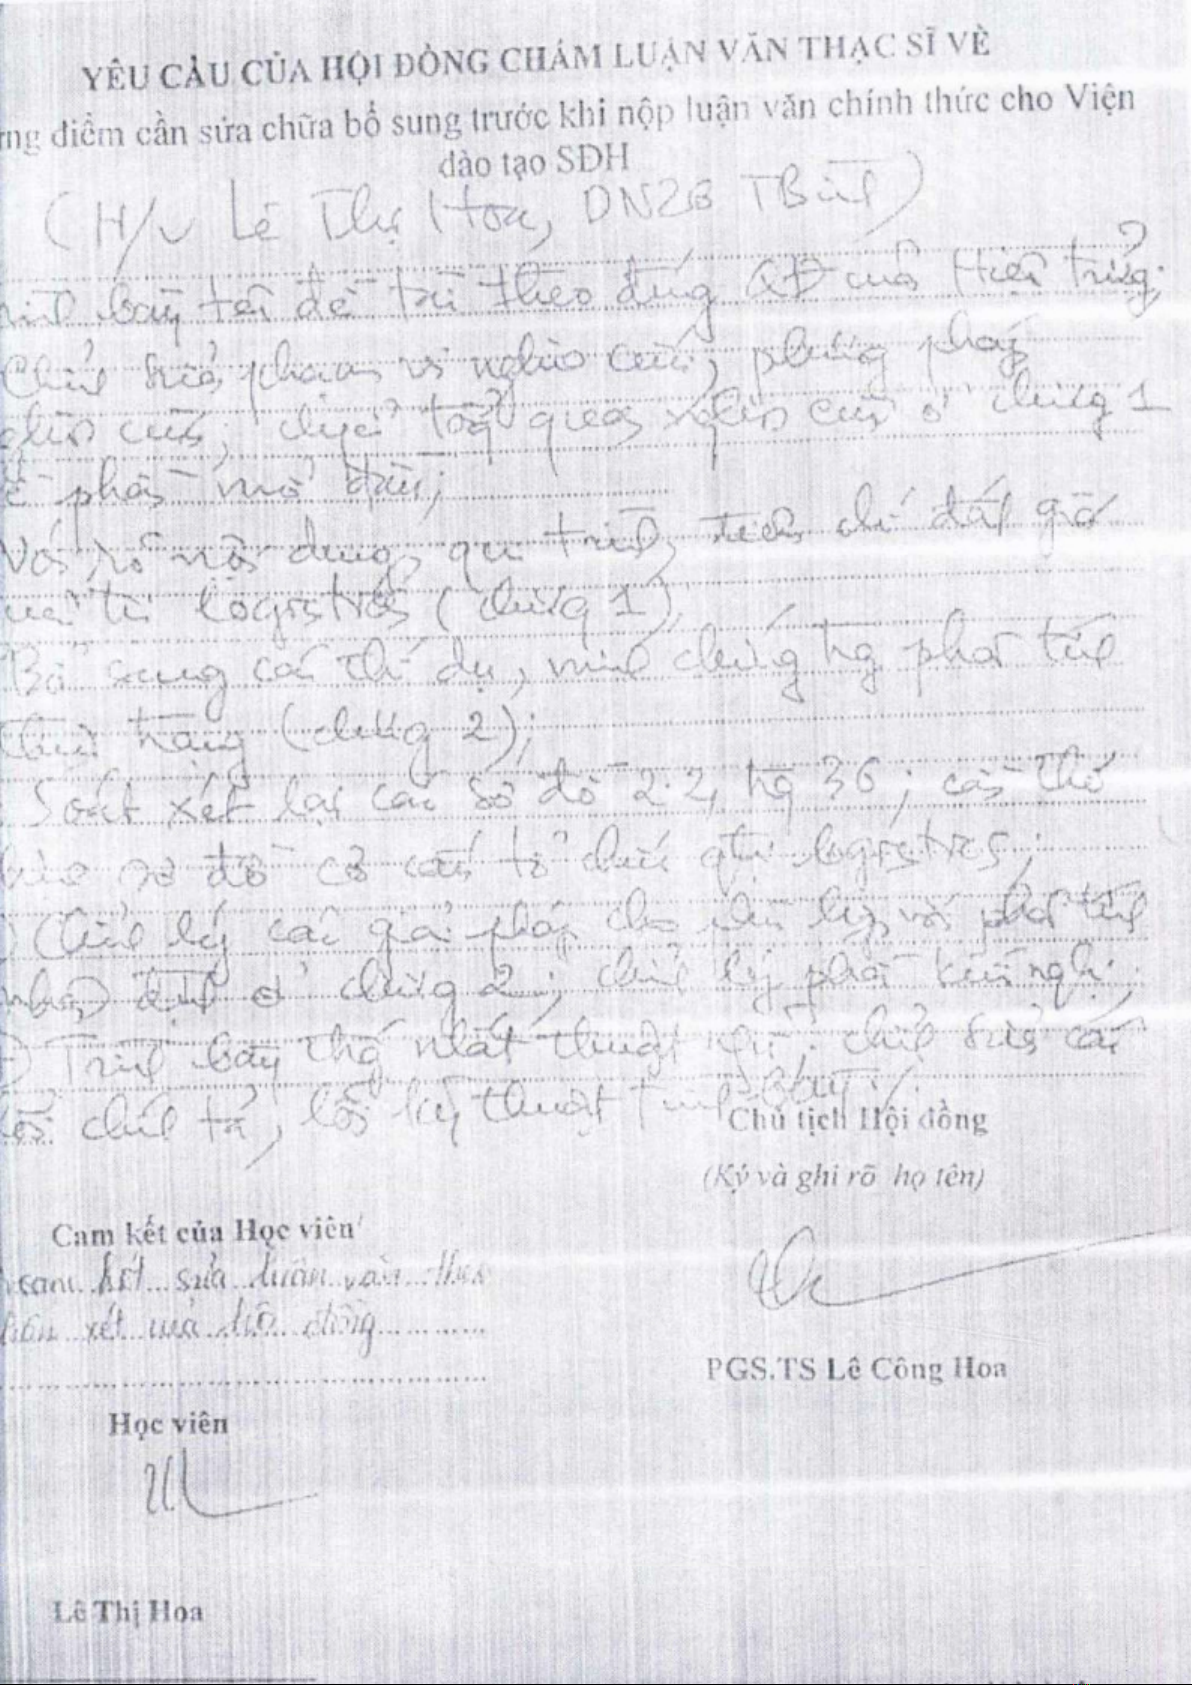 YÊU CẦU CỦA HỘI ĐỒNG CHẤM LUẬN VĂN THẠC SĨ VỀ
điểm cần sửa chữa bổ sung trước khi nộp luận văn chính thức cho Viện
đào tạo SĐH
(H/v Lê Thị Hoa, DN23B TBình)
bày tên đề tài theo đúng QĐ của Hiệu trưởng;
Chỉnh sửa phạm vi nghiên cứu, phương pháp
cứu, chuyển tổng quan ở chương 1
phần mở đầu;
rõ nội dung, qui trình, tiêu chí đánh giá
trị logistics (chương 1);
Bổ sung các thí dụ, minh chứng trong phân tích
thực trạng (chương 2);
Soát xét lại các sơ đồ 2.2, trg 36; cần
sơ đồ cơ cấu tổ chức qtrị logistics;
Chỉnh lý các giải pháp cho với phân tích
định ở chương 2; chỉnh lý phần kiến nghị;
Trình bày thống nhất thuật ngữ; chỉnh sửa các
lỗi chính tả, lỗi kỹ thuật trình bày./.
Chủ tịch Hội đồng
(Ký và ghi rõ họ tên)
Cam kết của Học viên
cam kết sửa luận văn theo
xét của hội đồng
PGS.TS Lê Công Hoa
Học viên
Lê Thị Hoa